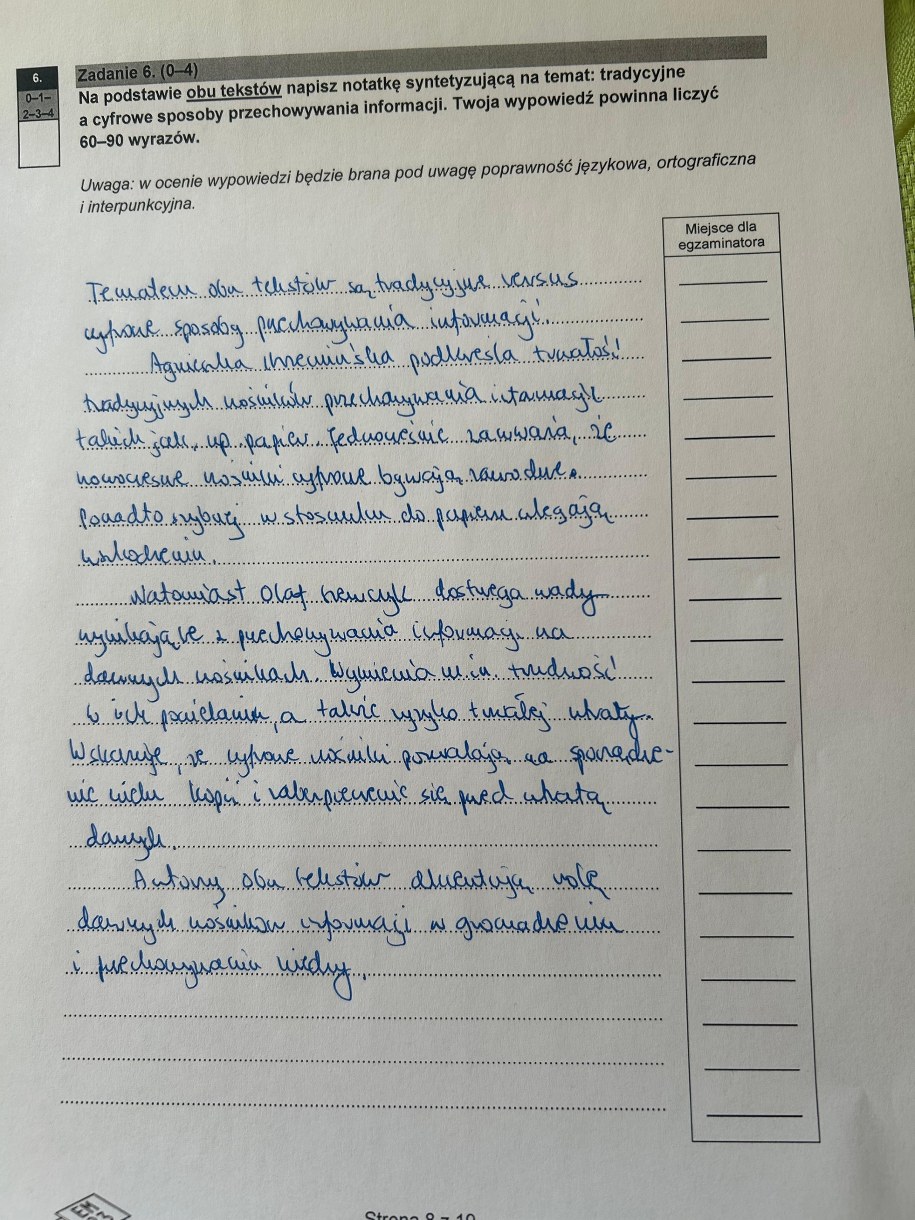 6.
0–1–
2–3–4
Zadanie 6. (0–4)
Na podstawie obu tekstów napisz notatkę syntetyzującą na temat: tradycyjne
a cyfrowe sposoby przechowywania informacji. Twoja wypowiedź powinna liczyć
60–90 wyrazów.
Uwaga: w ocenie wypowiedzi będzie brana pod uwagę poprawność językowa, ortograficzna
i interpunkcyjna.
Miejsce dla
egzaminatora
Tematem obu tekstów są tradycyjne versus
cyfrowe sposoby przechowywania informacji.
Agnieszka podkreśla trwałość
tradycyjnych nośników przechowywania informacji
takich jak, np. papier. Jednocześnie zauważa, że
nowoczesne nośniki cyfrowe bywają zawodne.
Ponadto szybciej w stosunku do papieru ulegają
uszkodzeniu.
Natomiast Olaf Szewczyk dostrzega wady
wynikające z przechowywania informacji na
dawnych nośnikach. Wymienia m.in. trudność
w ich powielaniu, a także ryzyko trwałej utraty.
Wskazuje, że cyfrowe nośniki pozwalają na sporządze-
nie wielu kopii i zabezpieczenie się przed utratą
danych.
Autorzy obu tekstów akcentują rolę
dawnych nośników informacji w gromadzeniu
i przechowywaniu wiedzy.